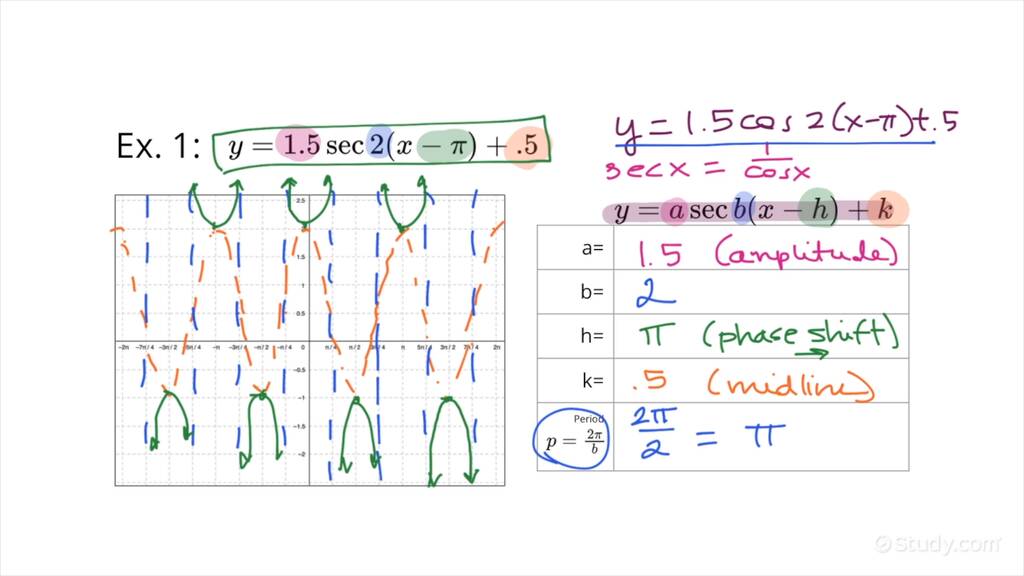 Ex. 1: y = 1.5 sec 2(x − π) + .5
y = 1.5 cos 2(x-π)+.5
sec x = 1/cosx
y = a sec b(x − h) + k
a= 1.5 (amplitude)
b= 2
h= π (phase shift)
k= .5 (midline)
Period
p = 2π/b 2π/2 = π
2.5
1.5
1
0.5
-2π -7π/4 -3π/2 -5π/4 -π -3π/4 -π/2 -π/4 0 π/4 π/2 3π/4 π 5π/4 3π/2 7π/4 2π
-0.5
-1
-1.5
-2
©Study.com